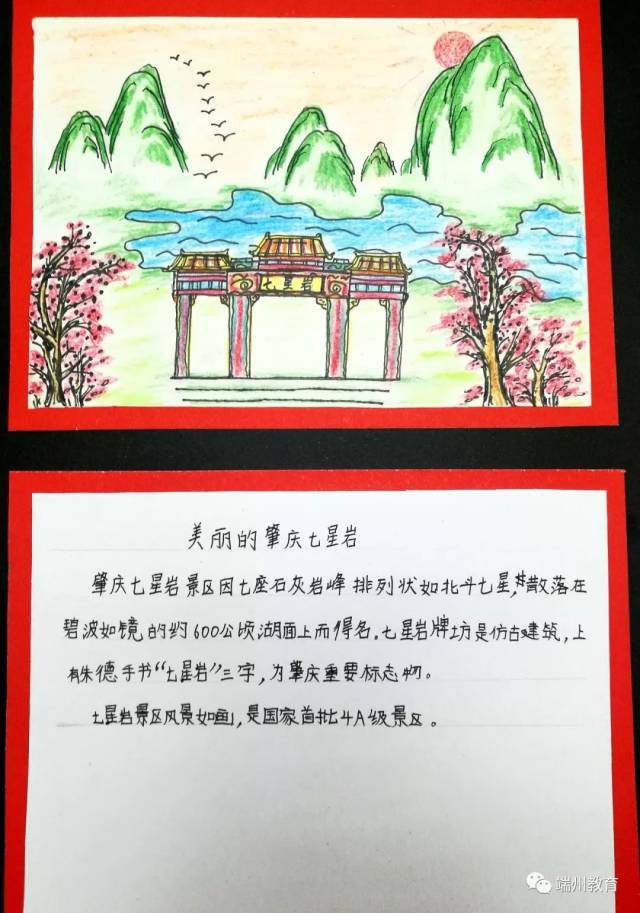 七星岩
美丽的肇庆七星岩
肇庆七星岩景区因七座石灰岩峰排列状如北斗七星，散落在
碧波如镜的约600公顷湖面上而得名。七星岩牌坊是仿古建筑，上
有朱德手书“七星岩”三字，为肇庆重要标志物。
七星岩景区风景如画，是国家首批4A级景区。
端州教育